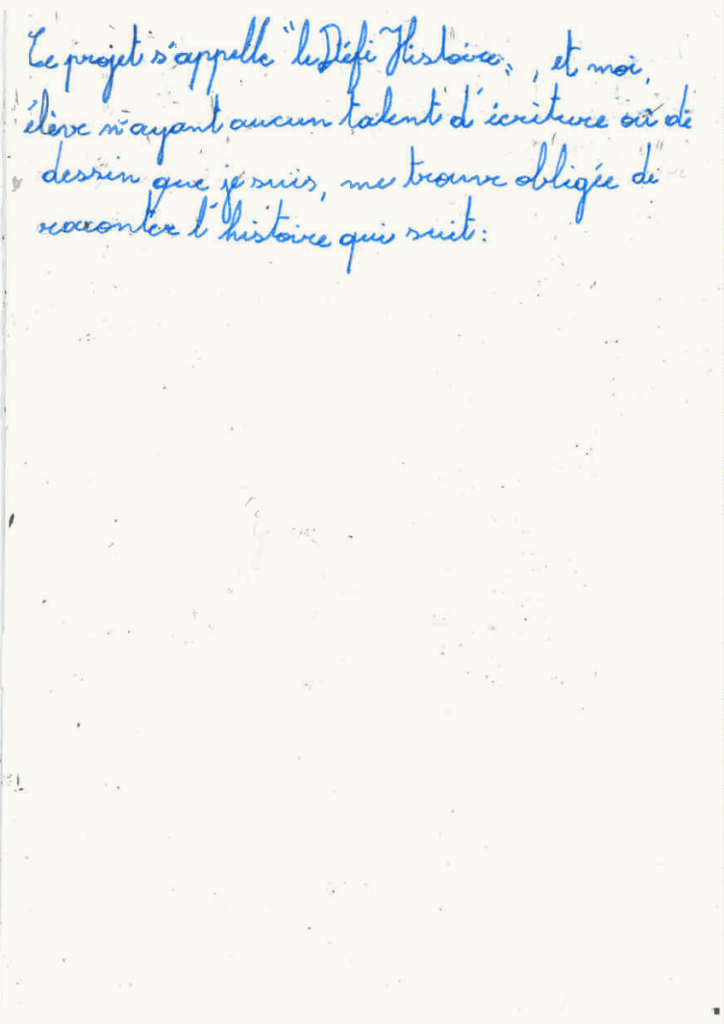 Ce projet s'appelle "le Défi Histoire", et moi,
élève n'ayant aucun talent d'écriture ou de
dessin que je suis, me trouve obligée de
raconter l'histoire qui suit: